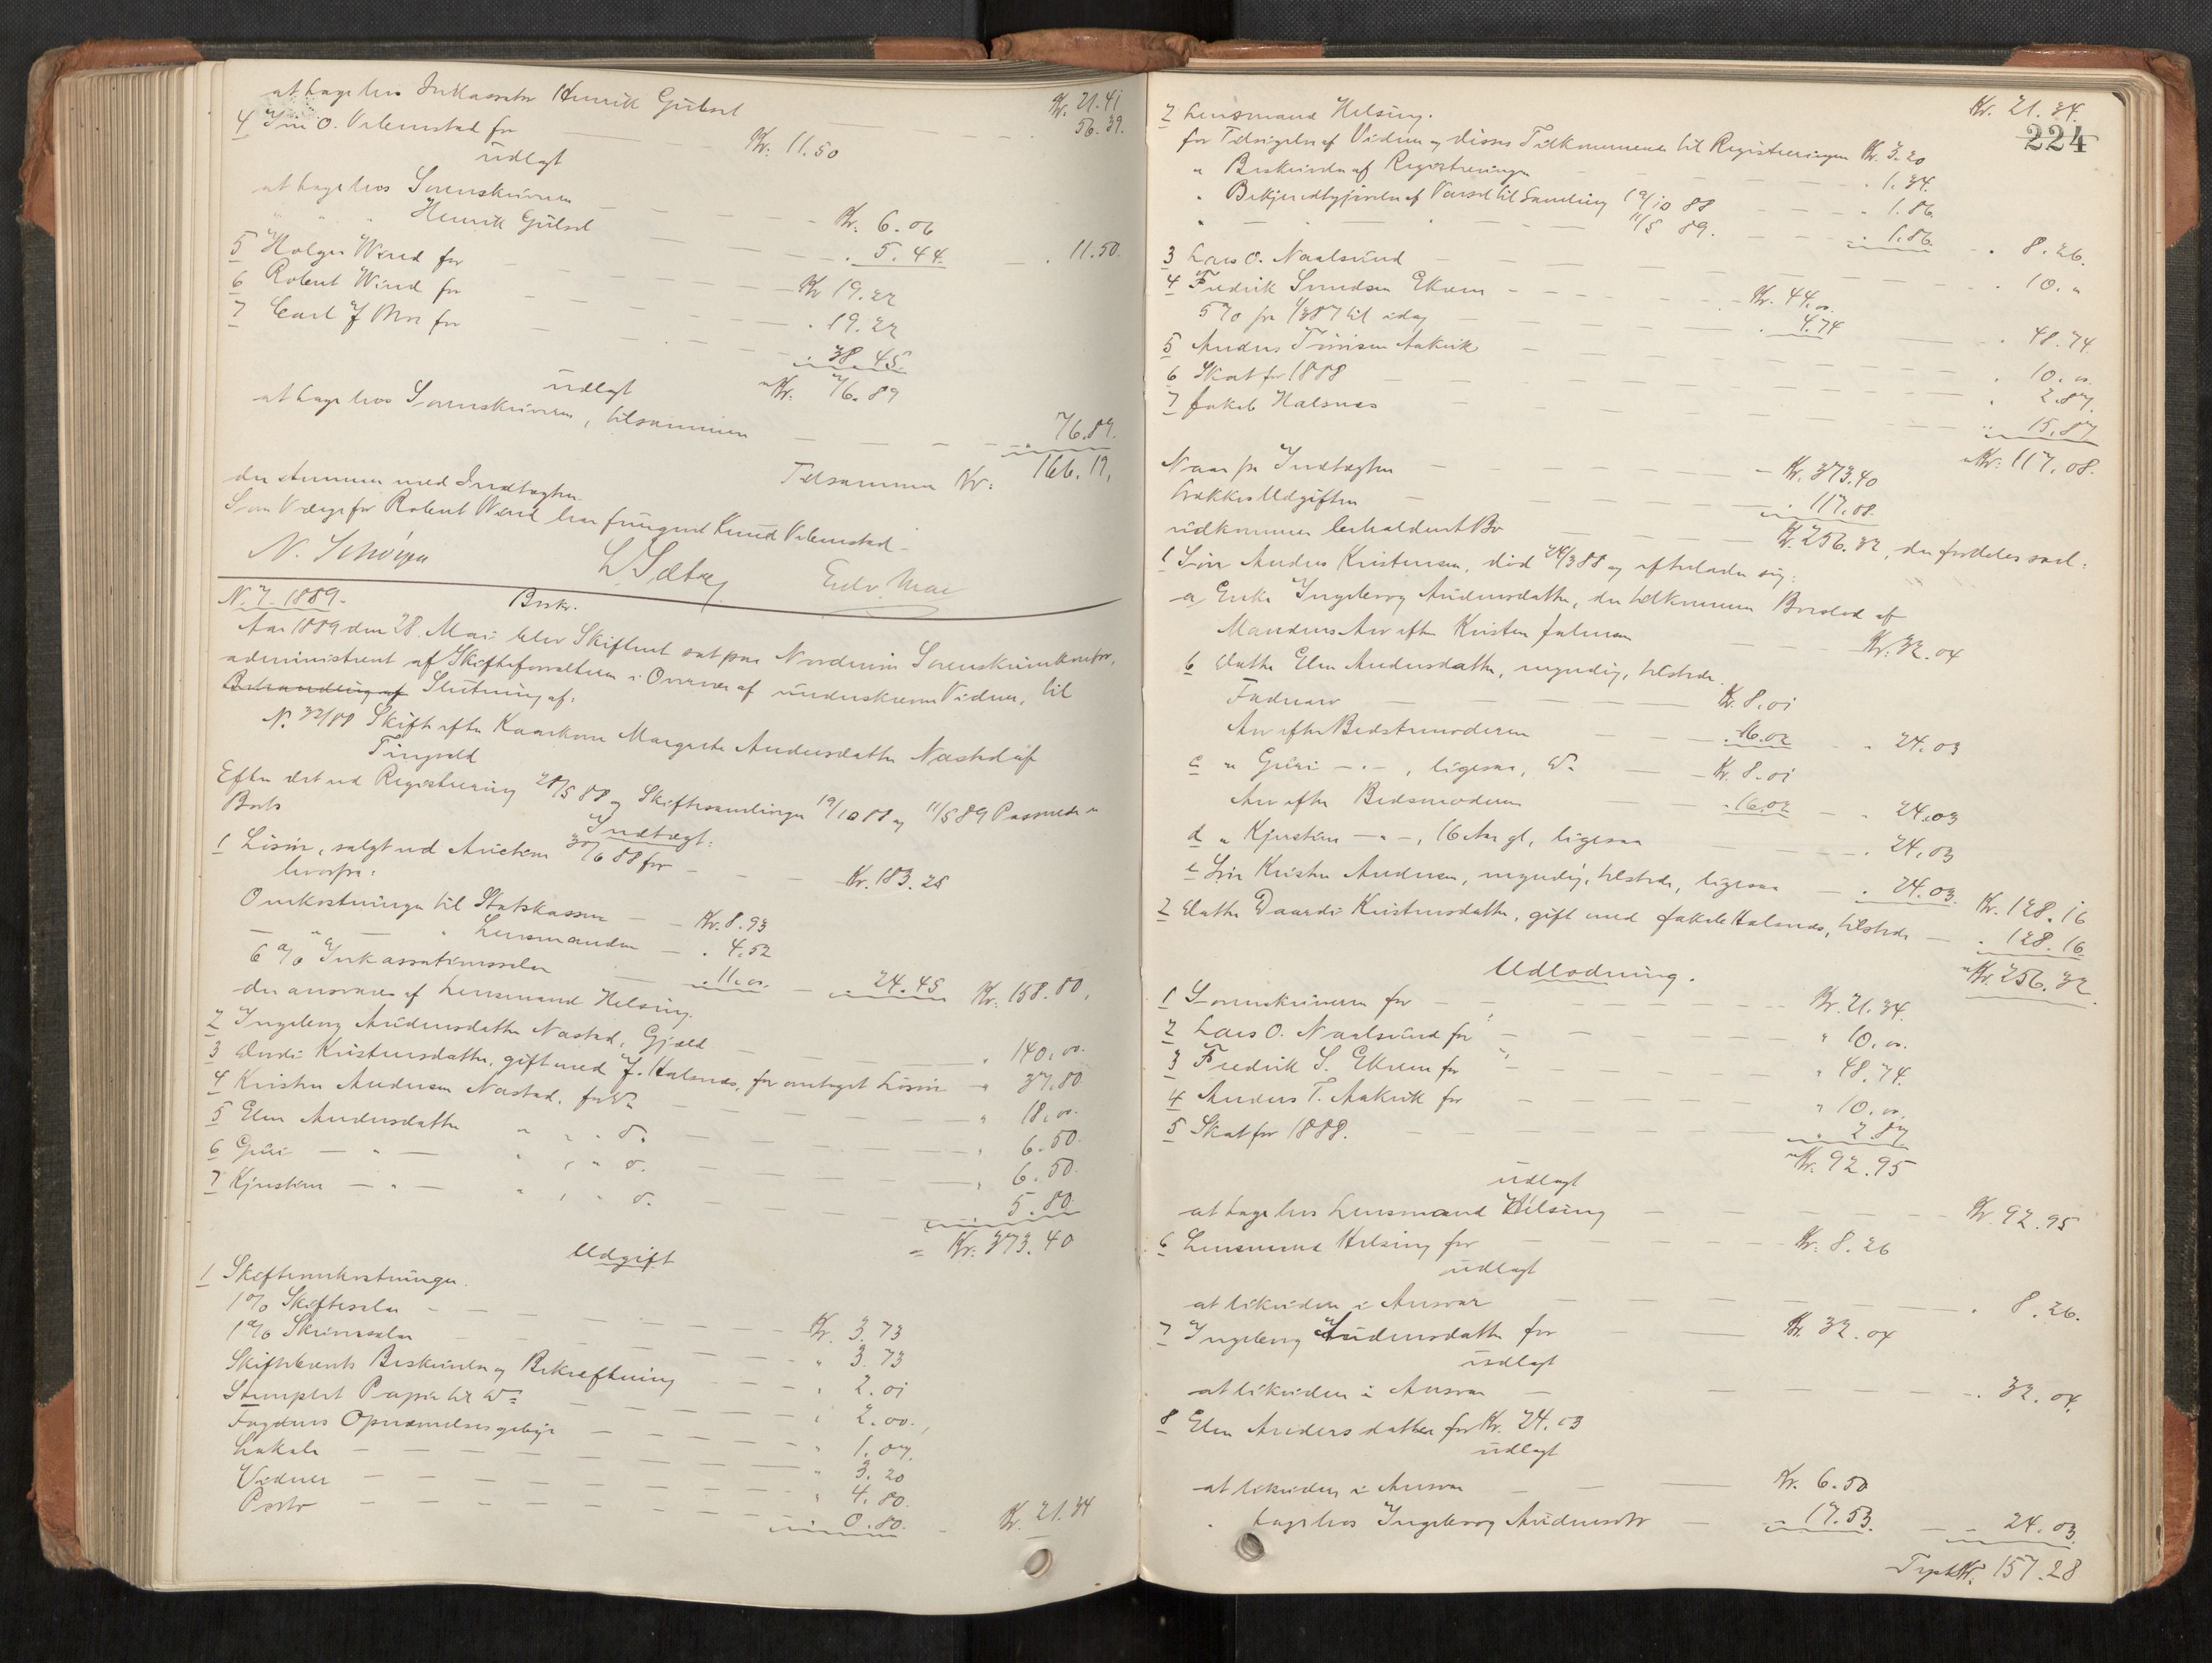 at tage hos Inkassator Henrik Gülsel Kr. 21.41
56.39.
4 O. Vebenstad for Kr: 11.50
udlagt
at tage hos Sorenskriveren Kr. 6.06
" " " Henrik Gülsel . 5.44 . 11.50.
5 Holger Wiod for Kr 19.22
6 Robert Wiod for . 19.22
7 Carl J. Moe for . 38.45
Kr. 76.89
udlagt
at tage hos Sorenskriveren, tilsammen 76.89.
Tilsammen Kr: 166.19.
der stemmer med Indtægten.
Som Værge for Robert Wiod har fungeret Knud Vebenstad
N. Schörgen L. Sæbøe Edv. Moe
N. 7. 1889. Besk.
Aar 1889 den 28. Mai blev Skifteret sat paa Nordmør Sorenskriverkontor,
administreret af Skifteforvalteren i Overvær af underskrevne Vidner, til
Behandling af Slutning af:
N. 32/88 Skifte efter Kaarkone Margrete Andersdatter Nastad af
Tingvold
Efter det ved Registrering 28/5 88 og Skiftesamlinger 19/10 88 og 11/5 89 Passerede er
Boets
Indtægt:
1 Løsøre, solgt ved Auktion 30/6 88 for Kr. 183.25
hvorfra:
Omkostninger til Statskassen Kr. 8.93
" Lensmanden . 4.52
6 % Inkassationssalær . 11.00 . 24.45 Kr. 158.80.
der ansvares af Lensmand Helsing.
2 Ingeborg Andersdatter Nastad, Gjæld . 140.00.
3 Kristensdatter, gift med J. Halsnes, for modtaget Løsøre " 37.80
4 Kristen Andersen Nastad, for Do " 18.00.
5 Elen Andersdatter " " . Do. " 6.50.
6 Guri — " — " , " Do. " 6.50.
7 Kjersten — " — " , " Do. 5.80.
= Kr. 373.40
Udgift
1 Skifteomkostninger.
1% Skiftesalær Kr. 3.73
1% Skriversalær " 3.73
Skiftebrevets Beskrivelse og Bekræftning " 2.01
Stemplet Papir til Do " 2.00.
Fogdens Opnævnelsesgebyr " 1.07.
Lokale " 3.20
Vidner " 4.80.
Porto 0.80. Kr. 21.34
Kr. 21.34.
224
2 Lensmand Helsing.
for Tilsigelse af Vidner og disses Tilkommende til Registreringen Kr. 3.20
" Beskrivelse af Registreringen . 1.34.
" Bekjendtgjørelse af Varsel til Samling 19/10 88 . 1.86.
" — " — " — 11/5 89. . 1.86. . 8.26.
3 Lars O. Naalsund . 10. "
4 Fredrik Svendsen Ekren Kr. 44.00.
5% fra 1/3 87 til idag . 4.74 . 48.74.
5 Anders Tørrisen Aakvik . 10.00.
6 Skat for 1888 . 2.87.
7 Jakob Halsnes . 15.87
Kr: 117.08.
Naar fra Indtægten Kr. 373.40
trækkes Udgiften . 117.08.
udkommer beholdent Bo Kr. 256.32, der fordeles saal:
1 Søn Anders Kristensen, død 24/3 88 og efterlader sig:
a, Enke Ingeborg Andersdatter, der tilkommer Boslod af
Mandens Arv efter Kristen Johnsen Kr. 32.04
b Datter Elen Andersdatter, myndig, tilstede.
Fadrearv Kr. 8.01
Arv efter Bedstemoderen . 16.02 . 24.03
c " Guri — " — , ligesaa, Do Kr. 8.01
Arv efter Bedsmoderen . 16.02 . 24.03
d " Kjersten — " — , 16 Aar gl, ligesaa . 24.03
e Søn Kristen Andersen, myndig, tilstede, ligesaa . 24.03. Kr. 128.16
2 Datter Kristensdatter, gift med Jakob Halsnes, tilstede . 128.16
Kr. 256.32.
Udlodning.
1 Sorenskriveren for Kr. 21.34.
2 Lars O. Naalsund for " 10.00.
3 Fredrik S. Ekren for " 48.74.
4 Anders T. Aakvik for " 10.00.
5 Skat for 1888. 2.87
Kr. 92.95
udlagt
at tage hos Lensmand Helsing Kr. 92.95
6 Lensmand Helsing for Kr. 8.26
udlagt
at likvidere i Ansvar . 8.26.
7 Ingeborg Andersdatter for Kr. 32.04
udlagt
at likvidere i Ansvar . 32.04.
8 Elen Andersdatter for Kr. 24.03
udlagt
at likvidere i Ansvar Kr. 6.50
" tage hos Ingeborg Andersdtr 17.53. 24.03.
Trpt Kr. 157.28